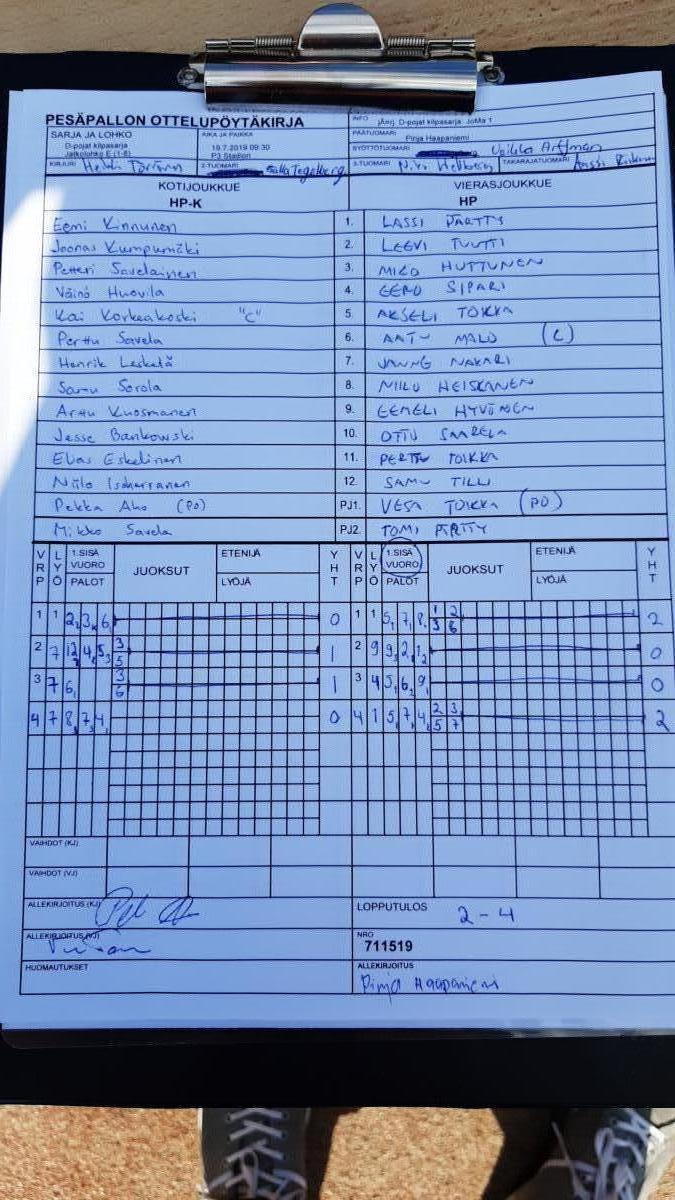 PESÄPALLON OTTELUPÖYTÄKIRJA
SARJA JA LOHKO
D-pojat kilpasarja
Jatkolohko E (1-8)
AIKA JA PAIKKA
19.7.2019 09:30
P3 Stadion
INFO jAnrj. D-pojat kilpasarja JoMa 1
PÄÄTUOMARI
Pinja Haapaniemi
SYÖTTÖTUOMARI
KIRJURI
2-TUOMARI
3-TUOMARI
TAKARAJATUOMARI
KOTIJOUKKUE
HP-K
VIERASJOUKKUE
HP
Eemi Kinnunen 1. LASSI PÄRTTY
Joonas Kumpumäki 2. LEEVI TUUTTI
Petteri Savelainen 3. MILO HUTTUNEN
Väinö Huovila 4. EERO SIPARI
Kai Korkeakoski "C" 5. AKSELI TOIKKA
Perttu Savela 6. AATU MALO (C)
Henrik Leskelä 7. JANNE NAKARI
Samu Sorola 8. NIILO HEISKANEN
Arttu Kuosmanen 9. EEMELI HYVÖNEN
Jesse Bankowski 10. OTTO SAARELA
Elias Eskelinen 11. PERTTU TOIKKA
Niilo 12. SAMU TILLI
Pekka Aho (PO) PJ1. VESA TOIKKA (PO)
Mikko Savela PJ2. TOMI PÄRTTY
VRP LYÖ 1.SISÄ VUORO PALOT JUOKSUT ETENIJÄ LYÖJÄ YHT VRP LYÖ 1.SISÄ VUORO PALOT JUOKSUT ETENIJÄ LYÖJÄ YHT
1 1 2, 3, 6, 0 1 1 5, 7, 8, 1/3 2/6 2
2 7 12, 4, 5, 3/5 1 2 9 9, 2, 1, 0
3 7 6, 3/6 1 3 4 5, 6, 9, 0
4 7 8, 7, 4, 0 4 1 5, 7, 4, 2/5 3/7 2
VAIHDOT (KJ)
VAIHDOT (VJ)
ALLEKIRJOITUS (KJ)
LOPPUTULOS 2-4
ALLEKIRJOITUS (VJ)
NRO
711519
HUOMAUTUKSET
ALLEKIRJOITUS
Pinja Haapaniemi